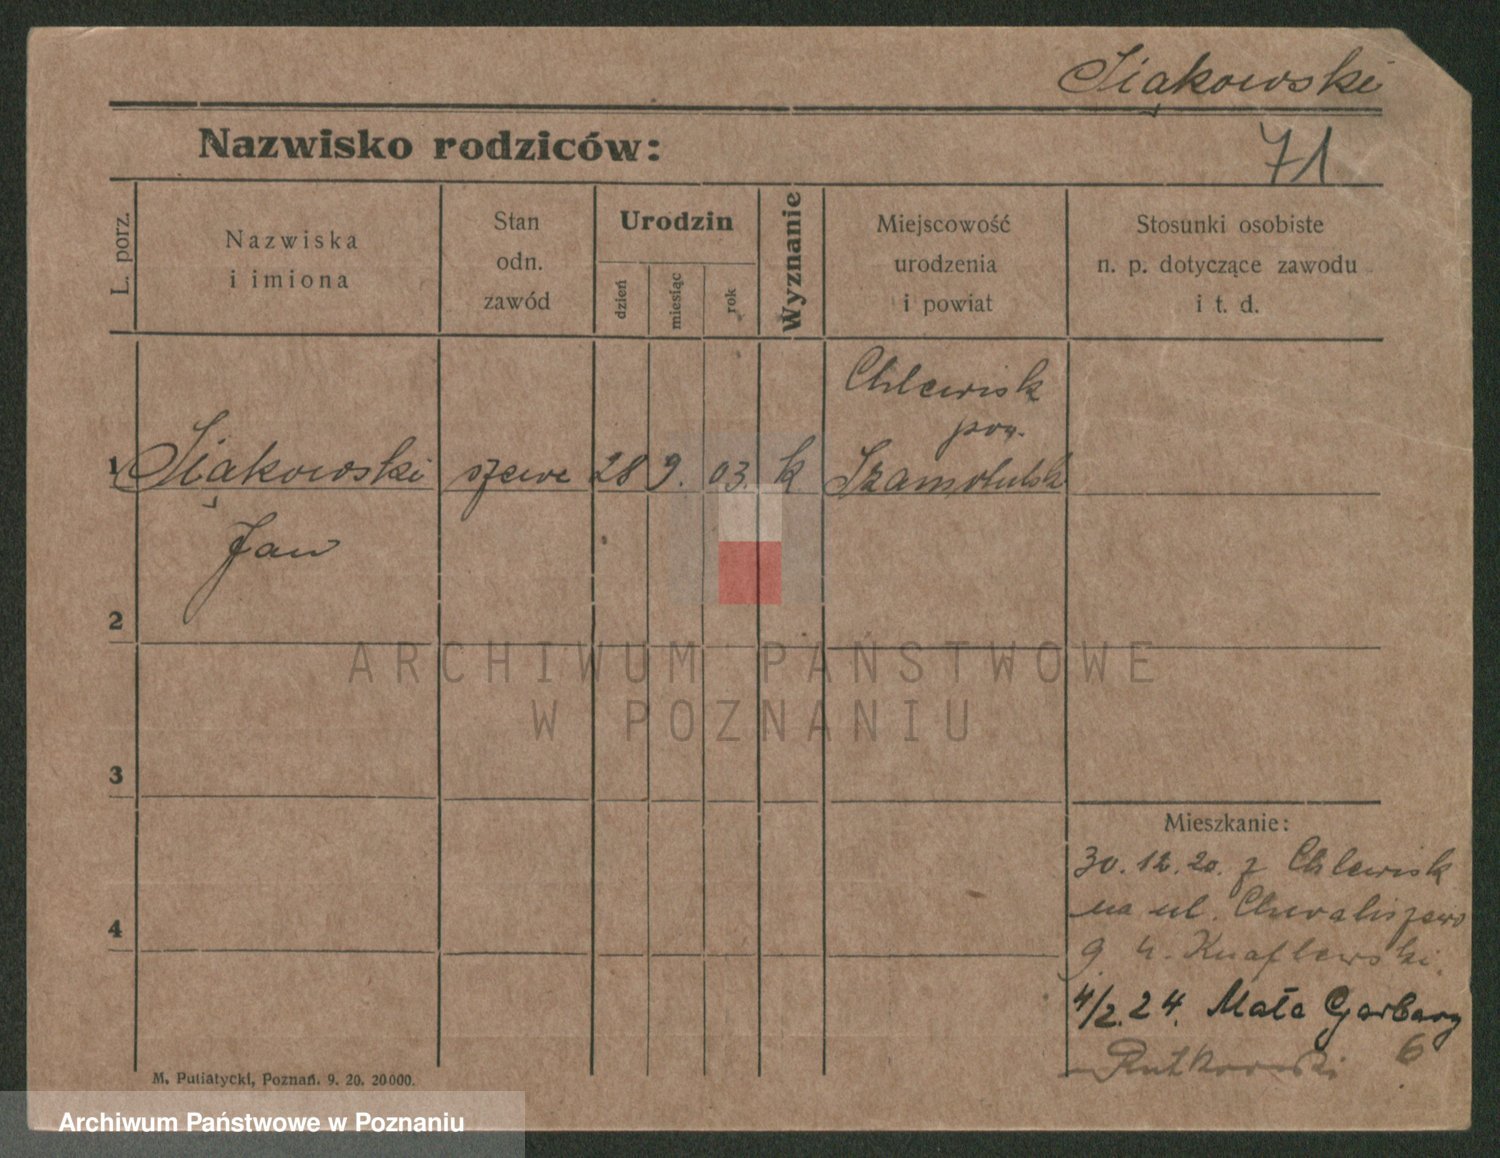 Siąkowski
Nazwisko rodziców:
71
L. porz.
Nazwiska
i imiona
Stan
odn.
zawód
Urodzin
dzień
miesiąc
rok
Wyznanie
Miejscowość
urodzenia
i powiat
Stosunki osobiste
n. p. dotyczące zawodu
i t. d.
Chlewisk
pow.
1 Siąkowski szewc 28 9. 03. k Szamotulsk
Jan
2
ARCHIWUM PAŃSTWOWE
W POZNANIU
3
Mieszkanie:
30.12.20. z Chlewisk
na ul. Chwaliszewo
4
9 u. Knaflewski.
4/2.24. Mała Garbary
6
Rutkowski
M. Putiatycki, Poznań. 9. 20. 20000.
Archiwum Państwowe w Poznaniu